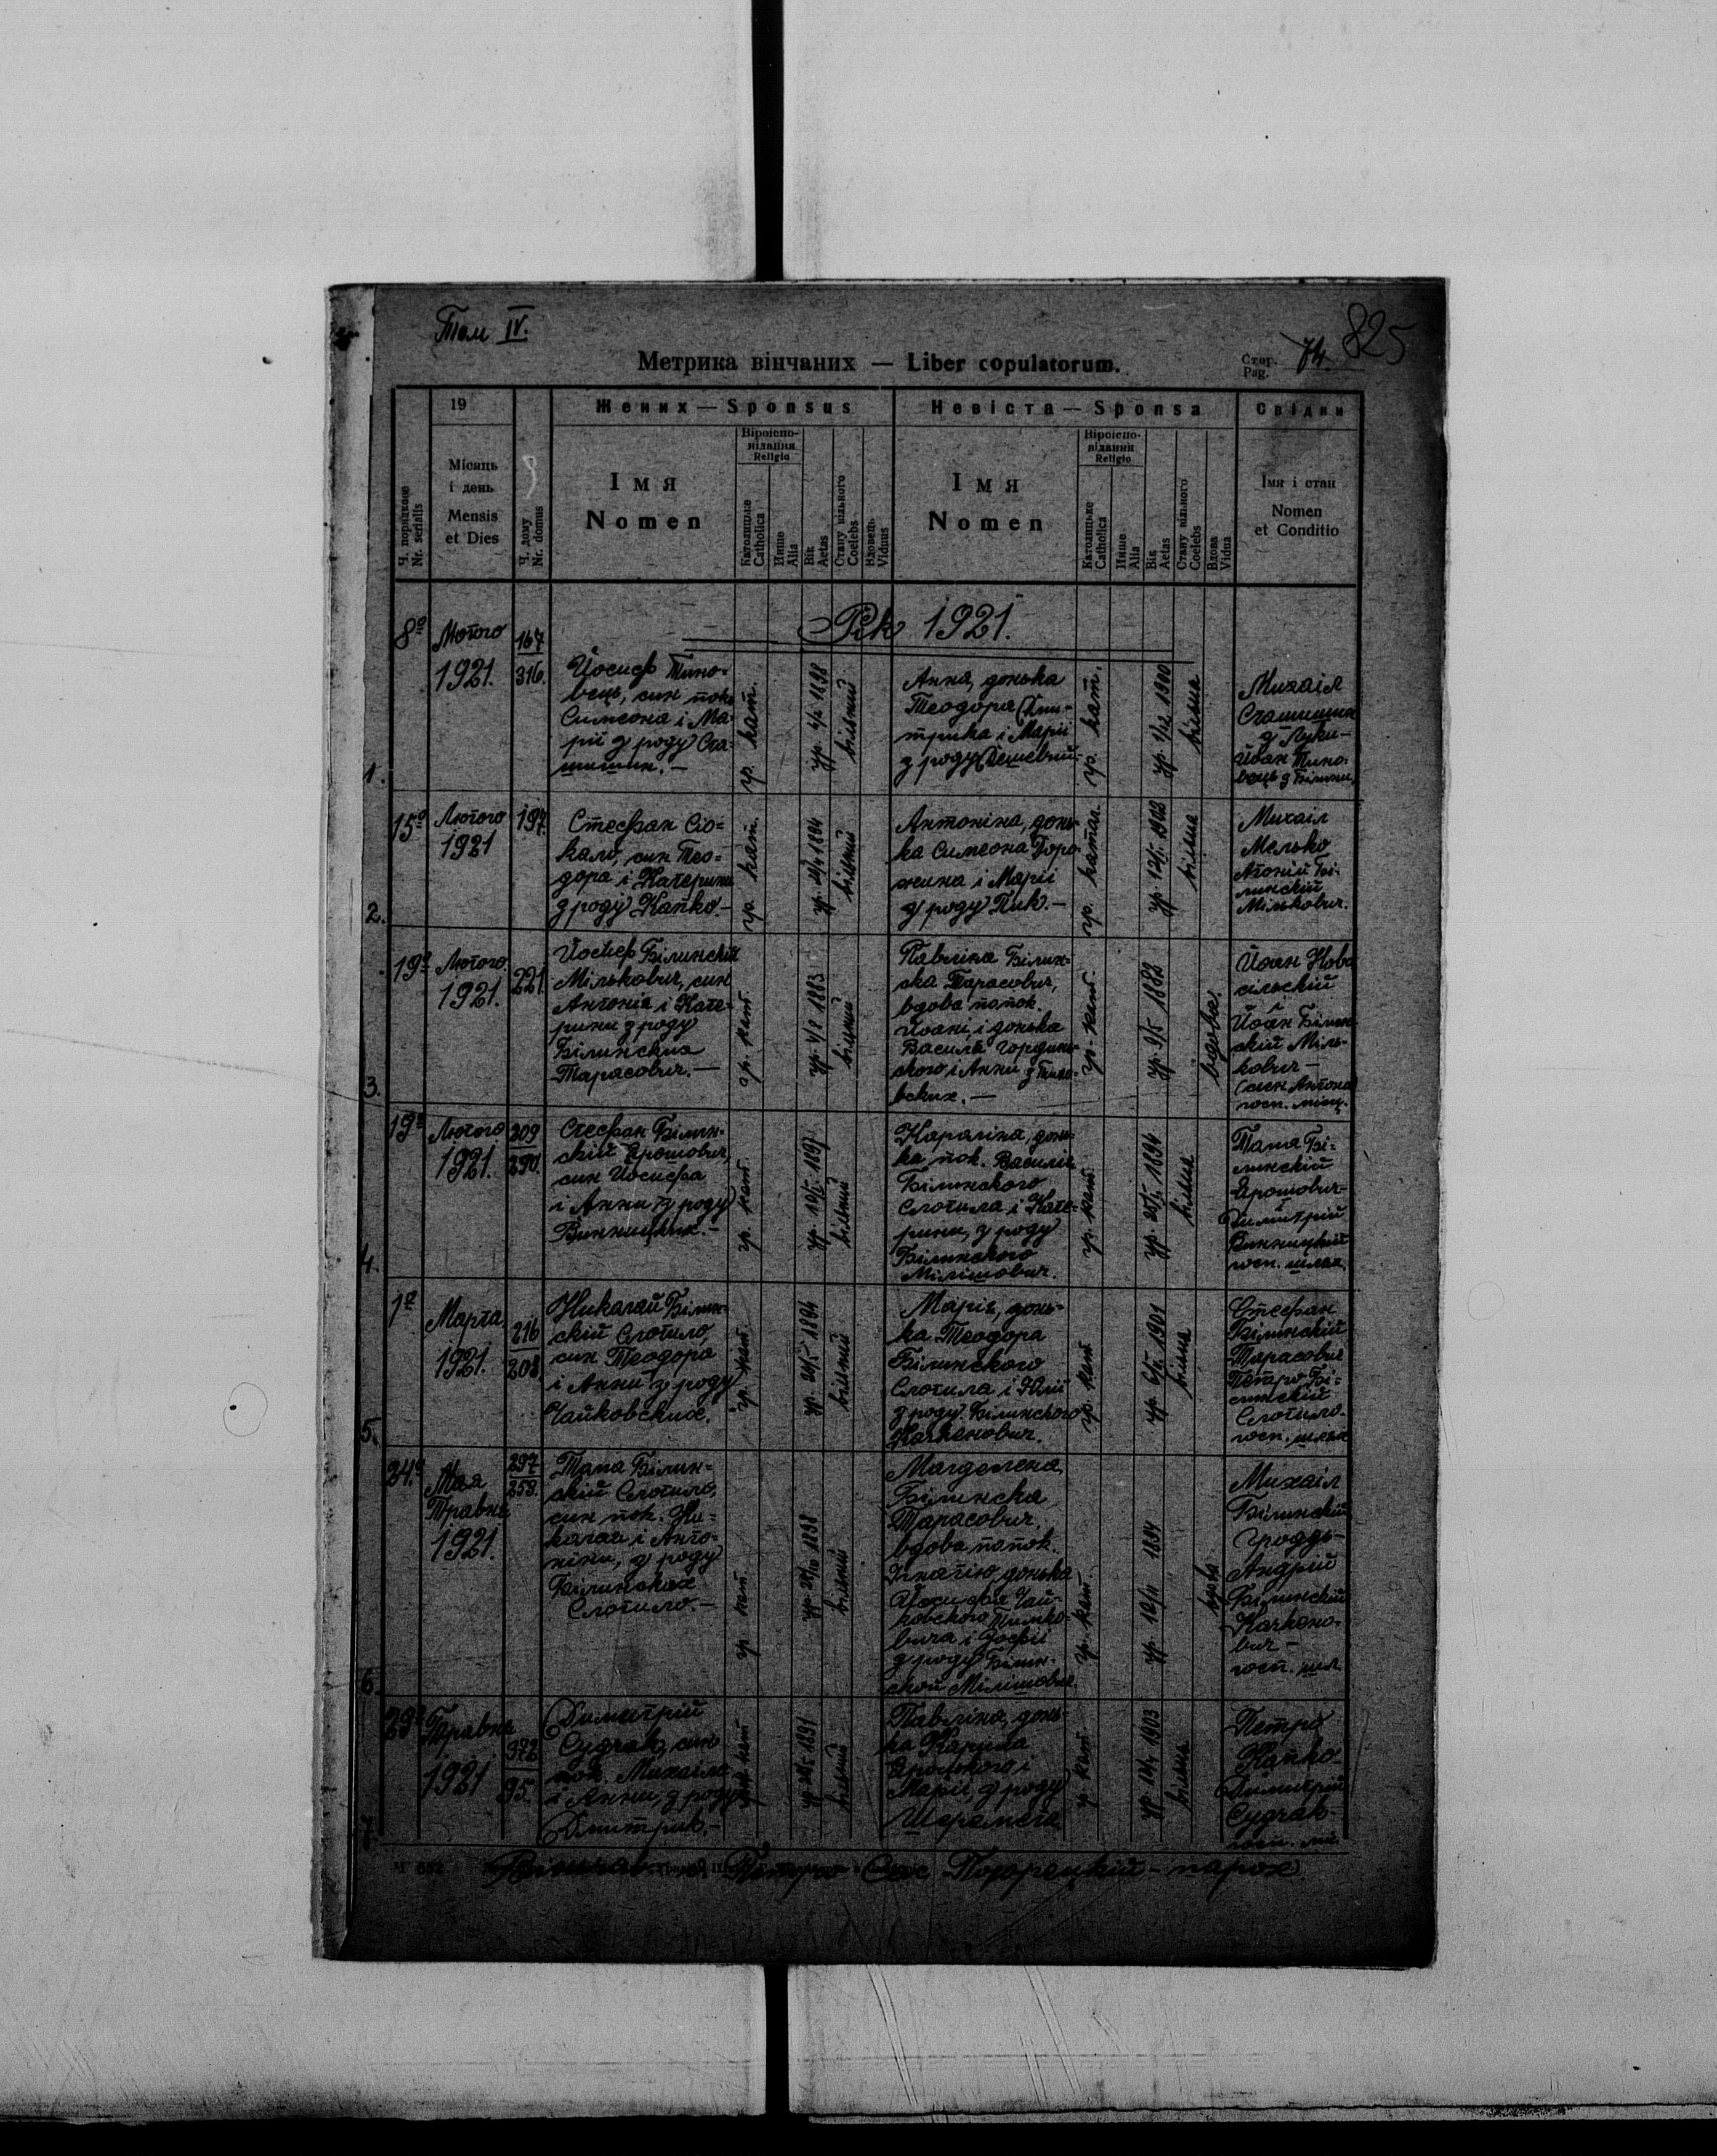 Том IV.
825
Метрика вінчаних — Liber copulatorum.
Стор.
Pag.
74.
19
Жених — Sponsus
Невіста — Sponsa
Свідки
Ч. порядкове
Nr. serialis
Місяць
і день
Mensis
et Dies
Ч. дому
Nr. domus
Імя
Nomen
Віроіспо-
відання
Religio
Католицьке
Catholica
Инше
Alia
Вік
Aetas
Стану вільного
Coelebs
Вдовець
Viduus
Імя
Nomen
Віроіспо-
відання
Religio
Католицьке
Catholica
Инше
Alia
Вік
Aetas
Стану вільного
Coelebs
Вдова
Vidua
Імя і стан
Nomen
et Conditio
Рік 1921.
1.
8го
Лютого
1921.
167
316.
Йосиф Тино-
вець, син пок.
Симеона і Ма-
рії з роду Ста-
шишин.—
гр. кат.
ур. 4/2 1898
вільний
Анна, донька
Теодора Дми-
трика і Марії
з роду Дешевий.
гр. кат.
ур. 1/12 1900
вільна
Михаіл
Сташишин
з Луки—
Йоан Тино-
вець з Білини
2.
15го
Лютого
1921
197
Стефан Сло-
кало, син Тео-
дора і Катерини
з роду Капко.—
гр. кат.
вільний
Антоніна, донь-
ка Симеона
і Марії
з роду Пик.—
гр. катол.
вільна
Михаіл
Мелько
Антоній Бі-
линскій
Мількович.
3.
19го
Лютого
1921.
221.
Йосиф Білинскій
Мількович, син
Антонія і Кате-
рини з роду
Білинских
Тарасович.—
гр. кат.
1883
вільний
Павліна Білин-
ска Тарасович,
вдова по пок.
Йоані, і донька
Василя Гординь-
ского і Анни з
вских.—
гр. кат.
ур. 9/5 1888
вдова.
Йоан Ново
сільскій
і
Йоан Білин-
скій Міль-
кович—
(син Антона)
4.
19го
Лютого
1921.
209
290.
Стефан Білин-
скій Ярошович,
син Йосифа
і Анни з роду
Винницких.—
гр. кат.
1897
вільний
Кароліна, донь-
ка пок. Василія
Білинского
Слотила і Кате-
рини, з роду
Білинского
Мілішович.
гр. кат.
1894
вільна
Тома Бі-
линскій
Ярошович—
Димитрій
Винницкій
5.
1го
Марта
1921.
216
208
Николай Білин-
скій Слотило,
син Теодора
і Анни з роду
Чайковских.
гр. кат.
1894
вільний
Марія, донь-
ка Теодора
Білинского
Слотила і Юлії
з роду Білинского
Качконович.
гр. кат.
1901
вільна
Стефан
Білинскій
Тарасович
Петро Бі-
линскій
Слотило.
6.
24го
Мая
Травня
1921.
297
259.
Тома Білин-
скій Слотило,
син пок. Ни-
колая і Анто-
ніни, з роду
Білинских
Слотило.—
гр. кат.
1898
вільний
Магдалена
Білинска
Тарасович,
вдова по пок.
Ігнатію, донька
Йосифа Чай-
ковского
і Зофії
з роду Білин-
ской Мілішович.
гр. кат.
1894
вдова
Михаіл
Білинскій
Андрій
Білинскій
Качконо-
вич—
7.
29го
Травня
1921
372
95.
Димитрій
Судчак, син
пок. Михаіла
і Анни, з роду
Дмитрик.—
1891
вільний
Павліна, донь-
ка Кирила
і
Марії, з роду
Шеремета
гр. кат.
1903
вільна
Петро
Капко
Димитрій
Судчак
Петро Похорецкій - парох.